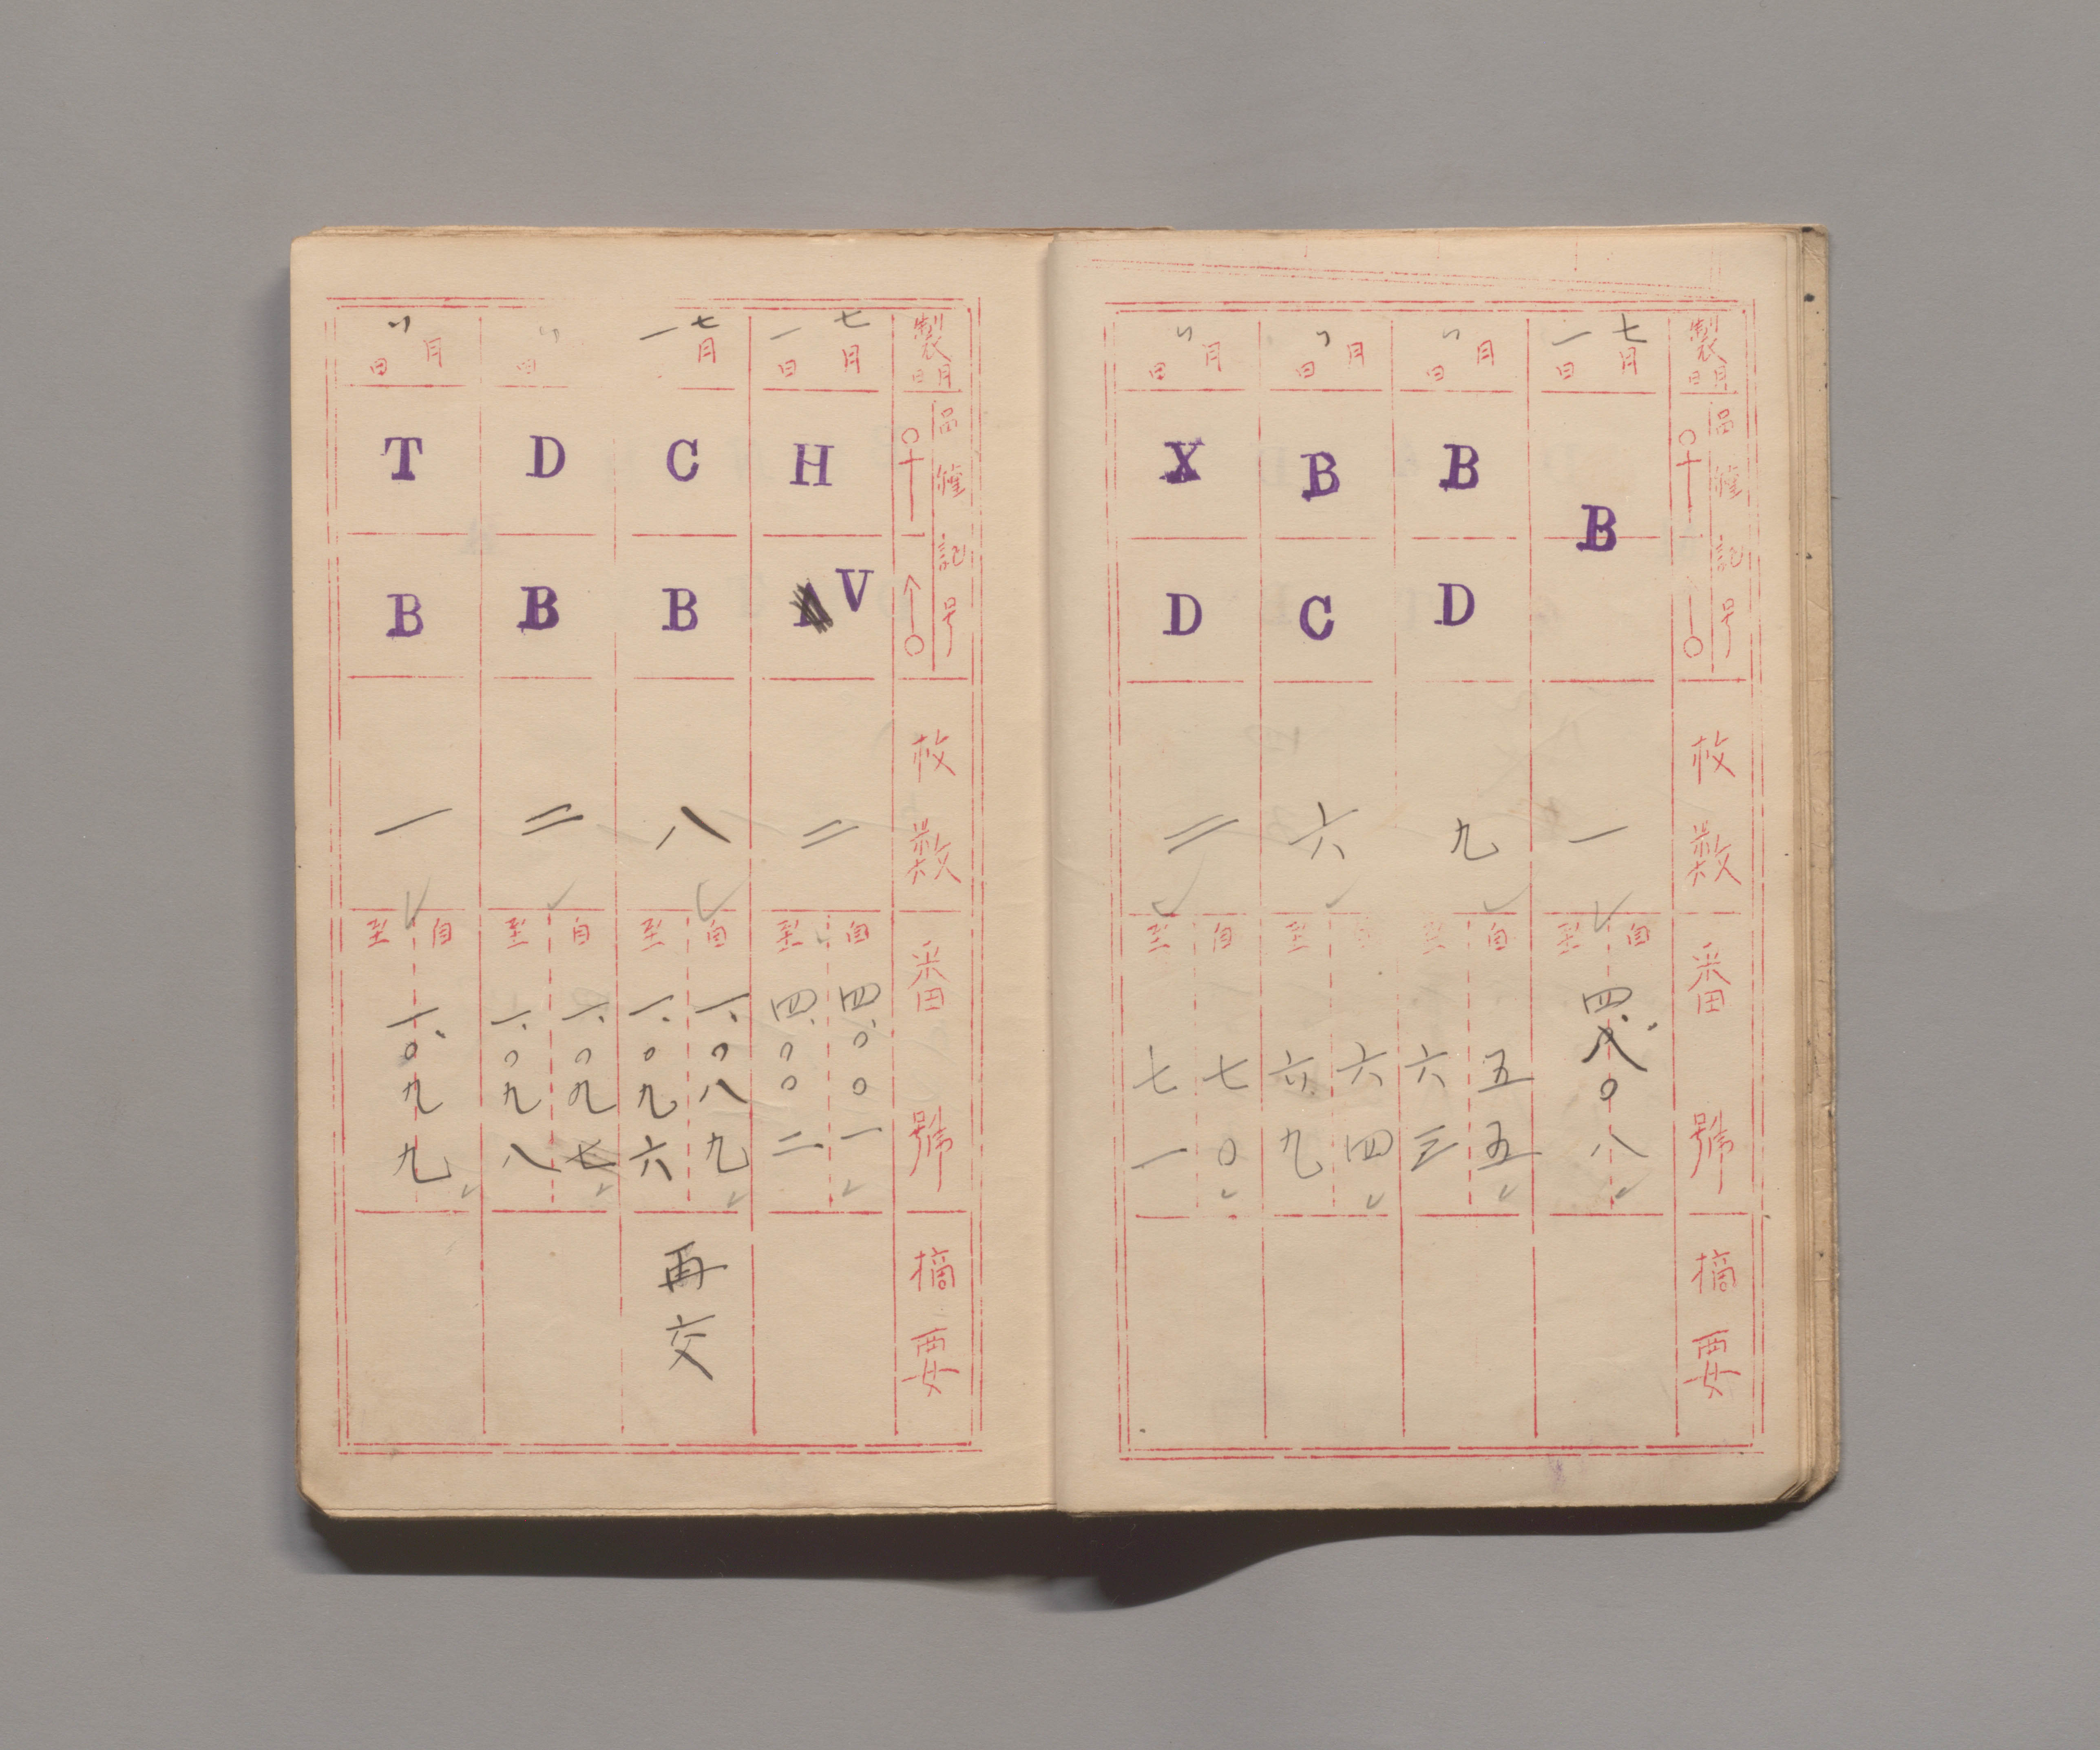 製月日
品種記号
♀
♂
枚数
番號
摘要
七月一日
B
一
自
至
四.八〇八
〃月日
B
D
九
自
至
五五
六三
〃月日
B
C
六
至
六四
六九
〃月日
X
D
二
自
至
七〇
七一
製月日
品種記号
♀
♂
枚数
番號
摘要
七月一日
H
V
二
自
至
四.〇〇一
四.〇〇二
七月一
C
B
八
自
至
一.〇八九
一.〇九六
再交
〃日
D
B
二
自
至
一.〇九七
一.〇九八
〃月日
T
B
一
自
至
一.〇九九